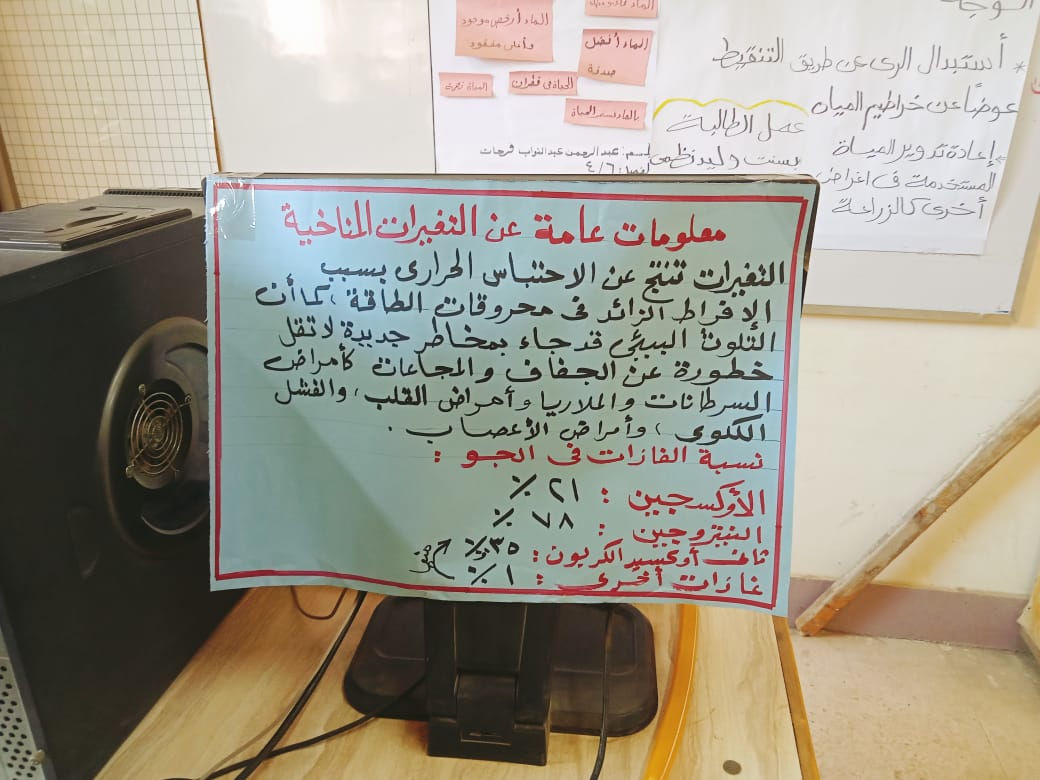 الماء أرخص موجود
وأغلى مفقود
الماء أفضل
صدقة
الحياة فى قطران
اسم: عبدالرحمن عبدالتواب فرحات
٤/٦
* أستبدال الرى عن طريق التنقيط
عوضًا عن خراطيم المياه
إعادة تدوير المياة
المستخدمة فى اغراض
أخرى كالزراعة
عمل الطالبة
بسنت وليد نظمى
معلومات عامة عن التغيرات المناخية
التغيرات تنتج عن الاحتباس الحرارى بسبب
الإفراط الزائد فى محروقات الطاقة ، كما أن
التلوث البيئى قد جاء بمخاطر جديدة لا تقل
خطورة عن الجفاف والمجاعات كأمراض
السرطانات والملاريا وأمراض القلب ، والفشل
الكلوى ، وأمراض الأعصاب .
نسبة الغازات فى الجو :
الأوكسجين : ٢١ ٪
النيتروجين : ٧٨ ٪
ثانى أوكسيد الكربون : ٣٥ ٪
غازات أخرى : ١ ٪